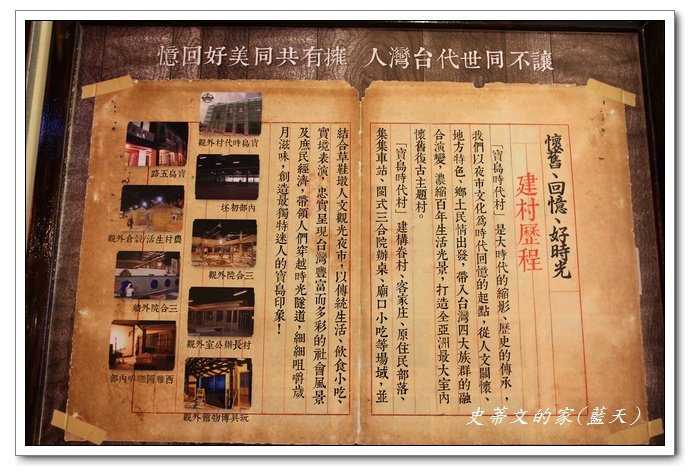 讓不同世代台灣人 擁有共同美好回憶
懷舊、回憶、好時光
建村歷程
「寶島時代村」是大時代的縮影、歷史的傳承，
我們以夜市文化為時代回憶的起點，從人文關懷、
地方特色、鄉土民情出發，帶入台灣四大族群的融
合演變，濃縮百年生活光景，打造全亞洲最大室內
懷舊復古主題村。
「寶島時代村」建構眷村、客家庄、原住民部落、
集集車站、閩式三合院辦桌、廟口小吃等場域，並
結合草鞋墩人文觀光夜市，以傳統生活、飲食小吃、
實境表演，忠實呈現台灣豐富而多彩的社會風景
及庶民經濟，帶領人們穿越時光隧道，細細咀嚼歲
月滋味，創造最獨特迷人的寶島印象！
寶島時代村外觀
內部初坯
三合院外觀
村長辦公室外觀
玩具博物館外觀
寶島五路
農村生活/穀倉外觀
三合院外牆
西雅圖咖啡內部
史蒂文的家(藍天)